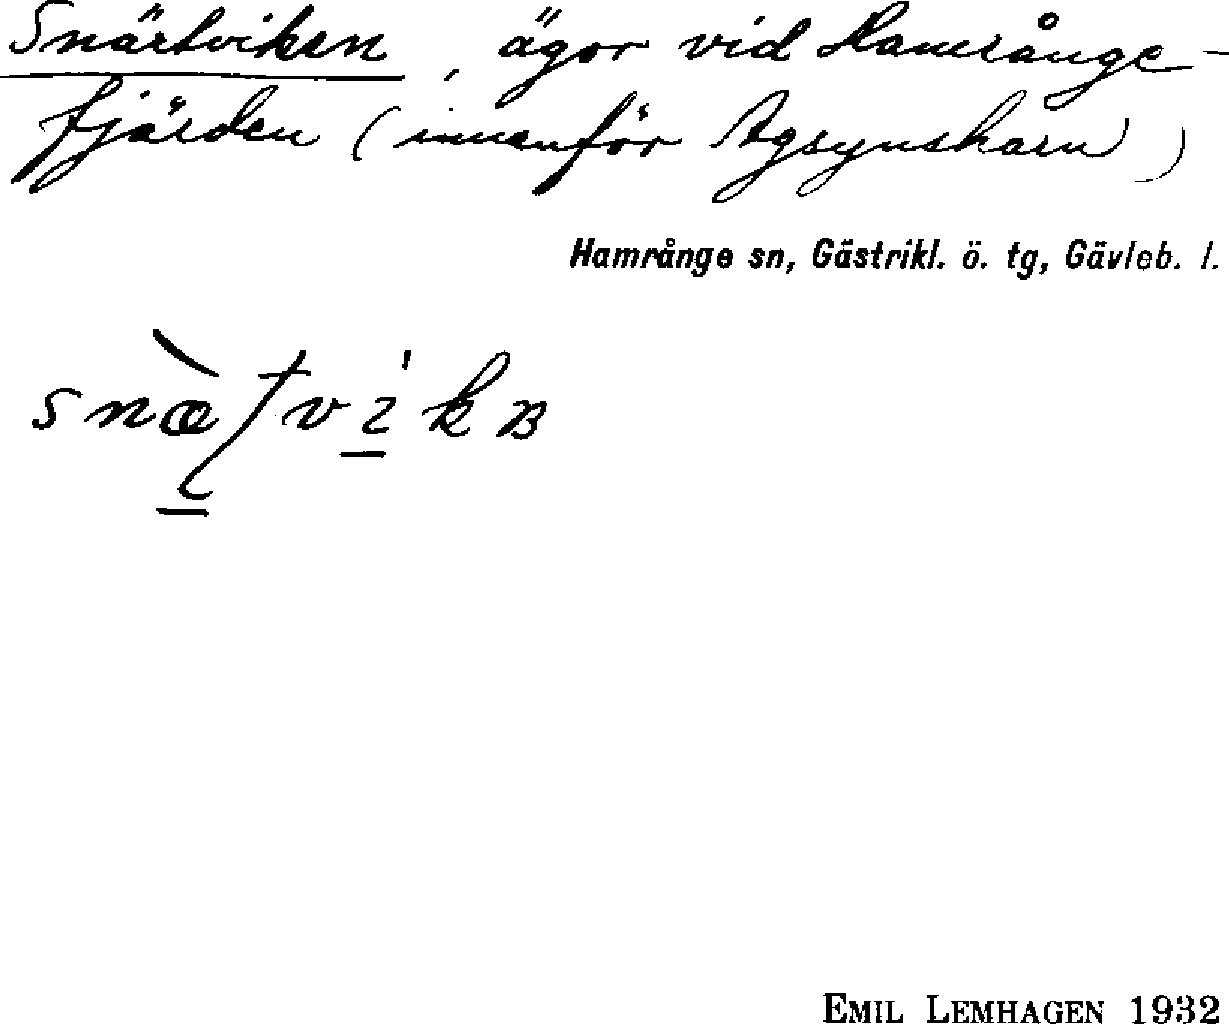 Snärtviken, ägor vid Hamrånge-
fjärden (innanför Agsynskarn)
Hamrånge sn, Gästrikl. ö. tg, Gävleb. l.
EMIL LEMHAGEN 1932